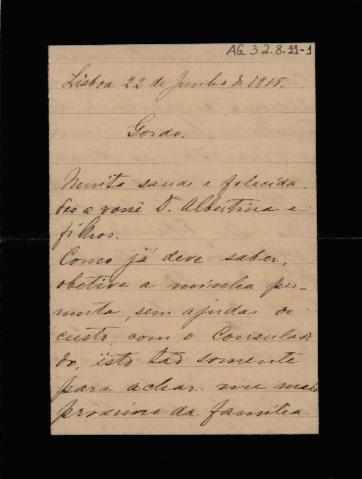 AG 3 2.8.11-1
Lisboa 22 de Junho de 1918.
Gordo.
Muita saude e felecida
des a você D. Albertina e
filhos.
Como já deve saber,
obetive a minha per-
muta, sem ajudas de
custo, com o Consulado
do, isto tão somente
para achar me mais
proximo da familia